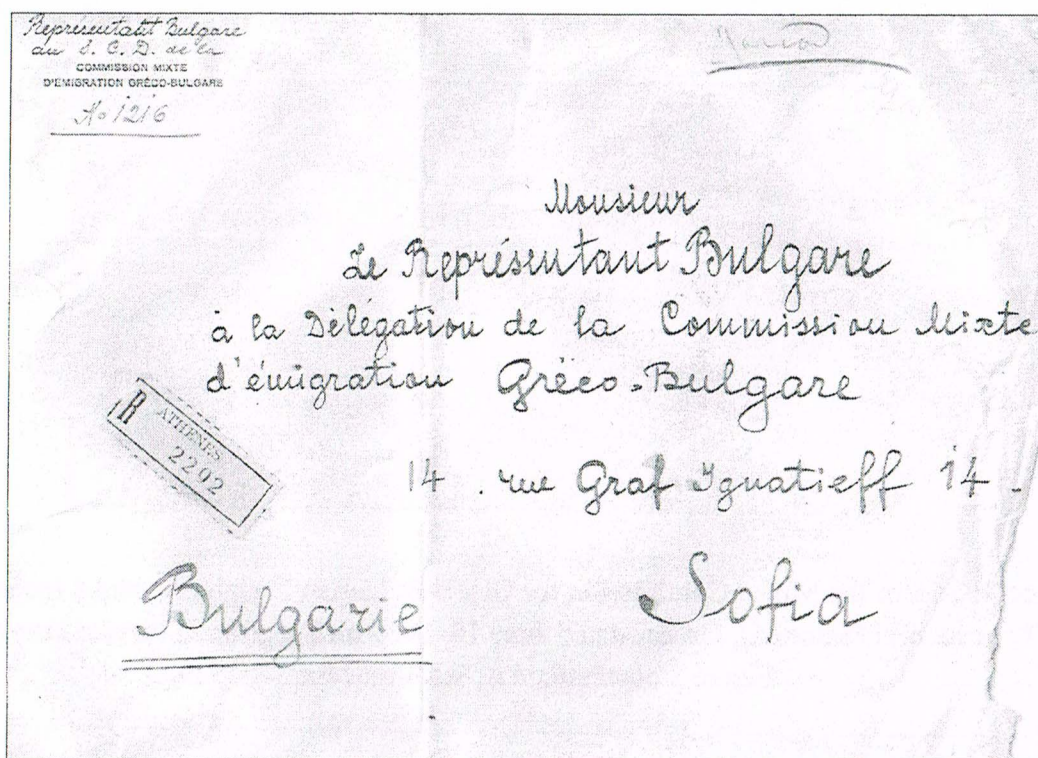 Représentant Bulgare
au S. C. D. de la
COMMISSION MIXTE
D'EMIGRATION GRÉCO-BULGARE
No 1216
Monsieur
Le Représentant Bulgare
à la Délégation de la Commission Mixte
d'émigration Gréco-Bulgare
R ATHENES
2202
14 . rue Graf Ignatieff 14 .
Bulgarie Sofia